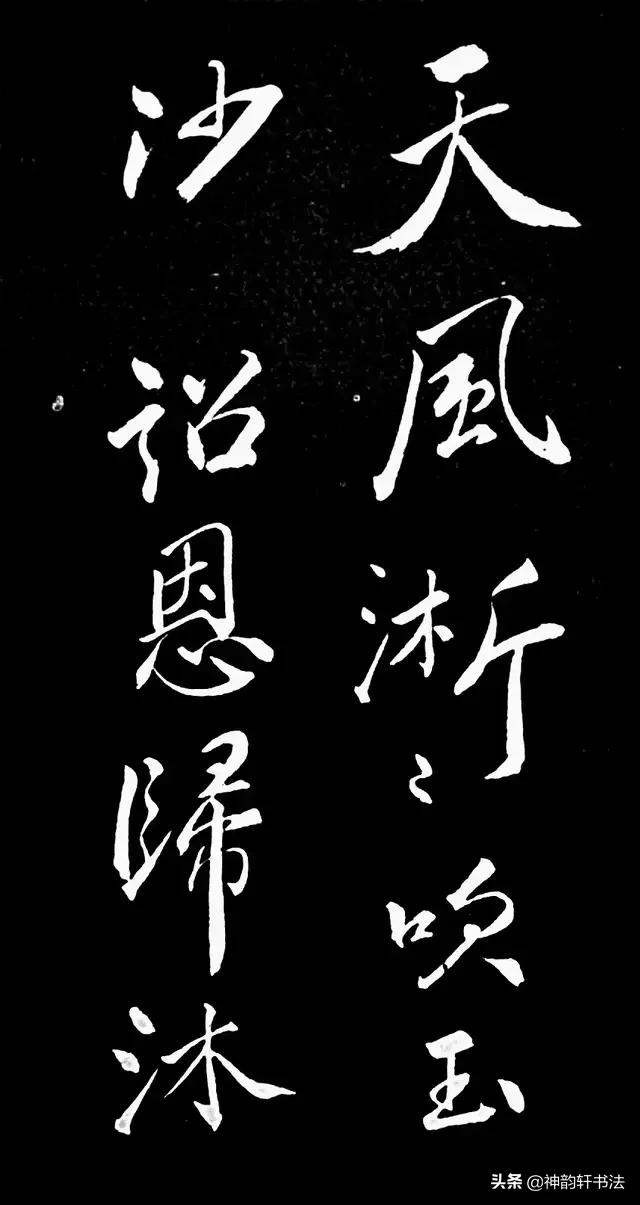 天風淅〻吹玉
沙詔恩歸沐
头条 @神韵轩书法